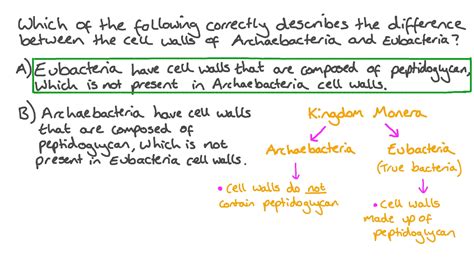 Which of the following correctly describes the difference
between the cell walls of Archaebacteria and Eubacteria?
A) Eubacteria have cell walls that are composed of peptidoglycan,
which is not present in Archaebacteria cell walls.
B) Archaebacteria have cell walls
that are composed of
peptidoglycan, which is not
present in Eubacteria cell walls.
Kingdom Monera
Archaebacteria
Eubacteria
(True bacteria)
• Cell walls do not
contain peptidoglycan
• Cell walls
made up of
peptidoglycan